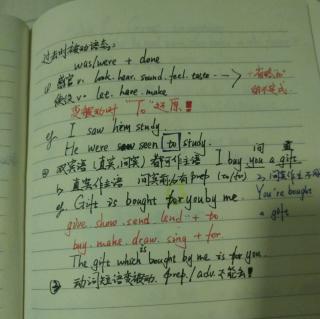 过去时被动语态:
was/were + done
① 感官 v. look. hear. sound. feel. taste ---> "省略to"的不定式
使役 v. let. have. make
变被动时 "To" 还原!
eg. I saw him study.
He were seen to study.
② 双宾语 (直宾、间宾) 都可作主语 I buy you a gift. 间 直
直宾作主语 间宾前加有 prep (to/for)
eg Gift is bought for you by me. You're bought a gift
give. show. send. lend + to
buy. make. draw. sing + for
The gift which is bought by me is for you.
③ 动词短语变被动. prep./adv. 不能丢!